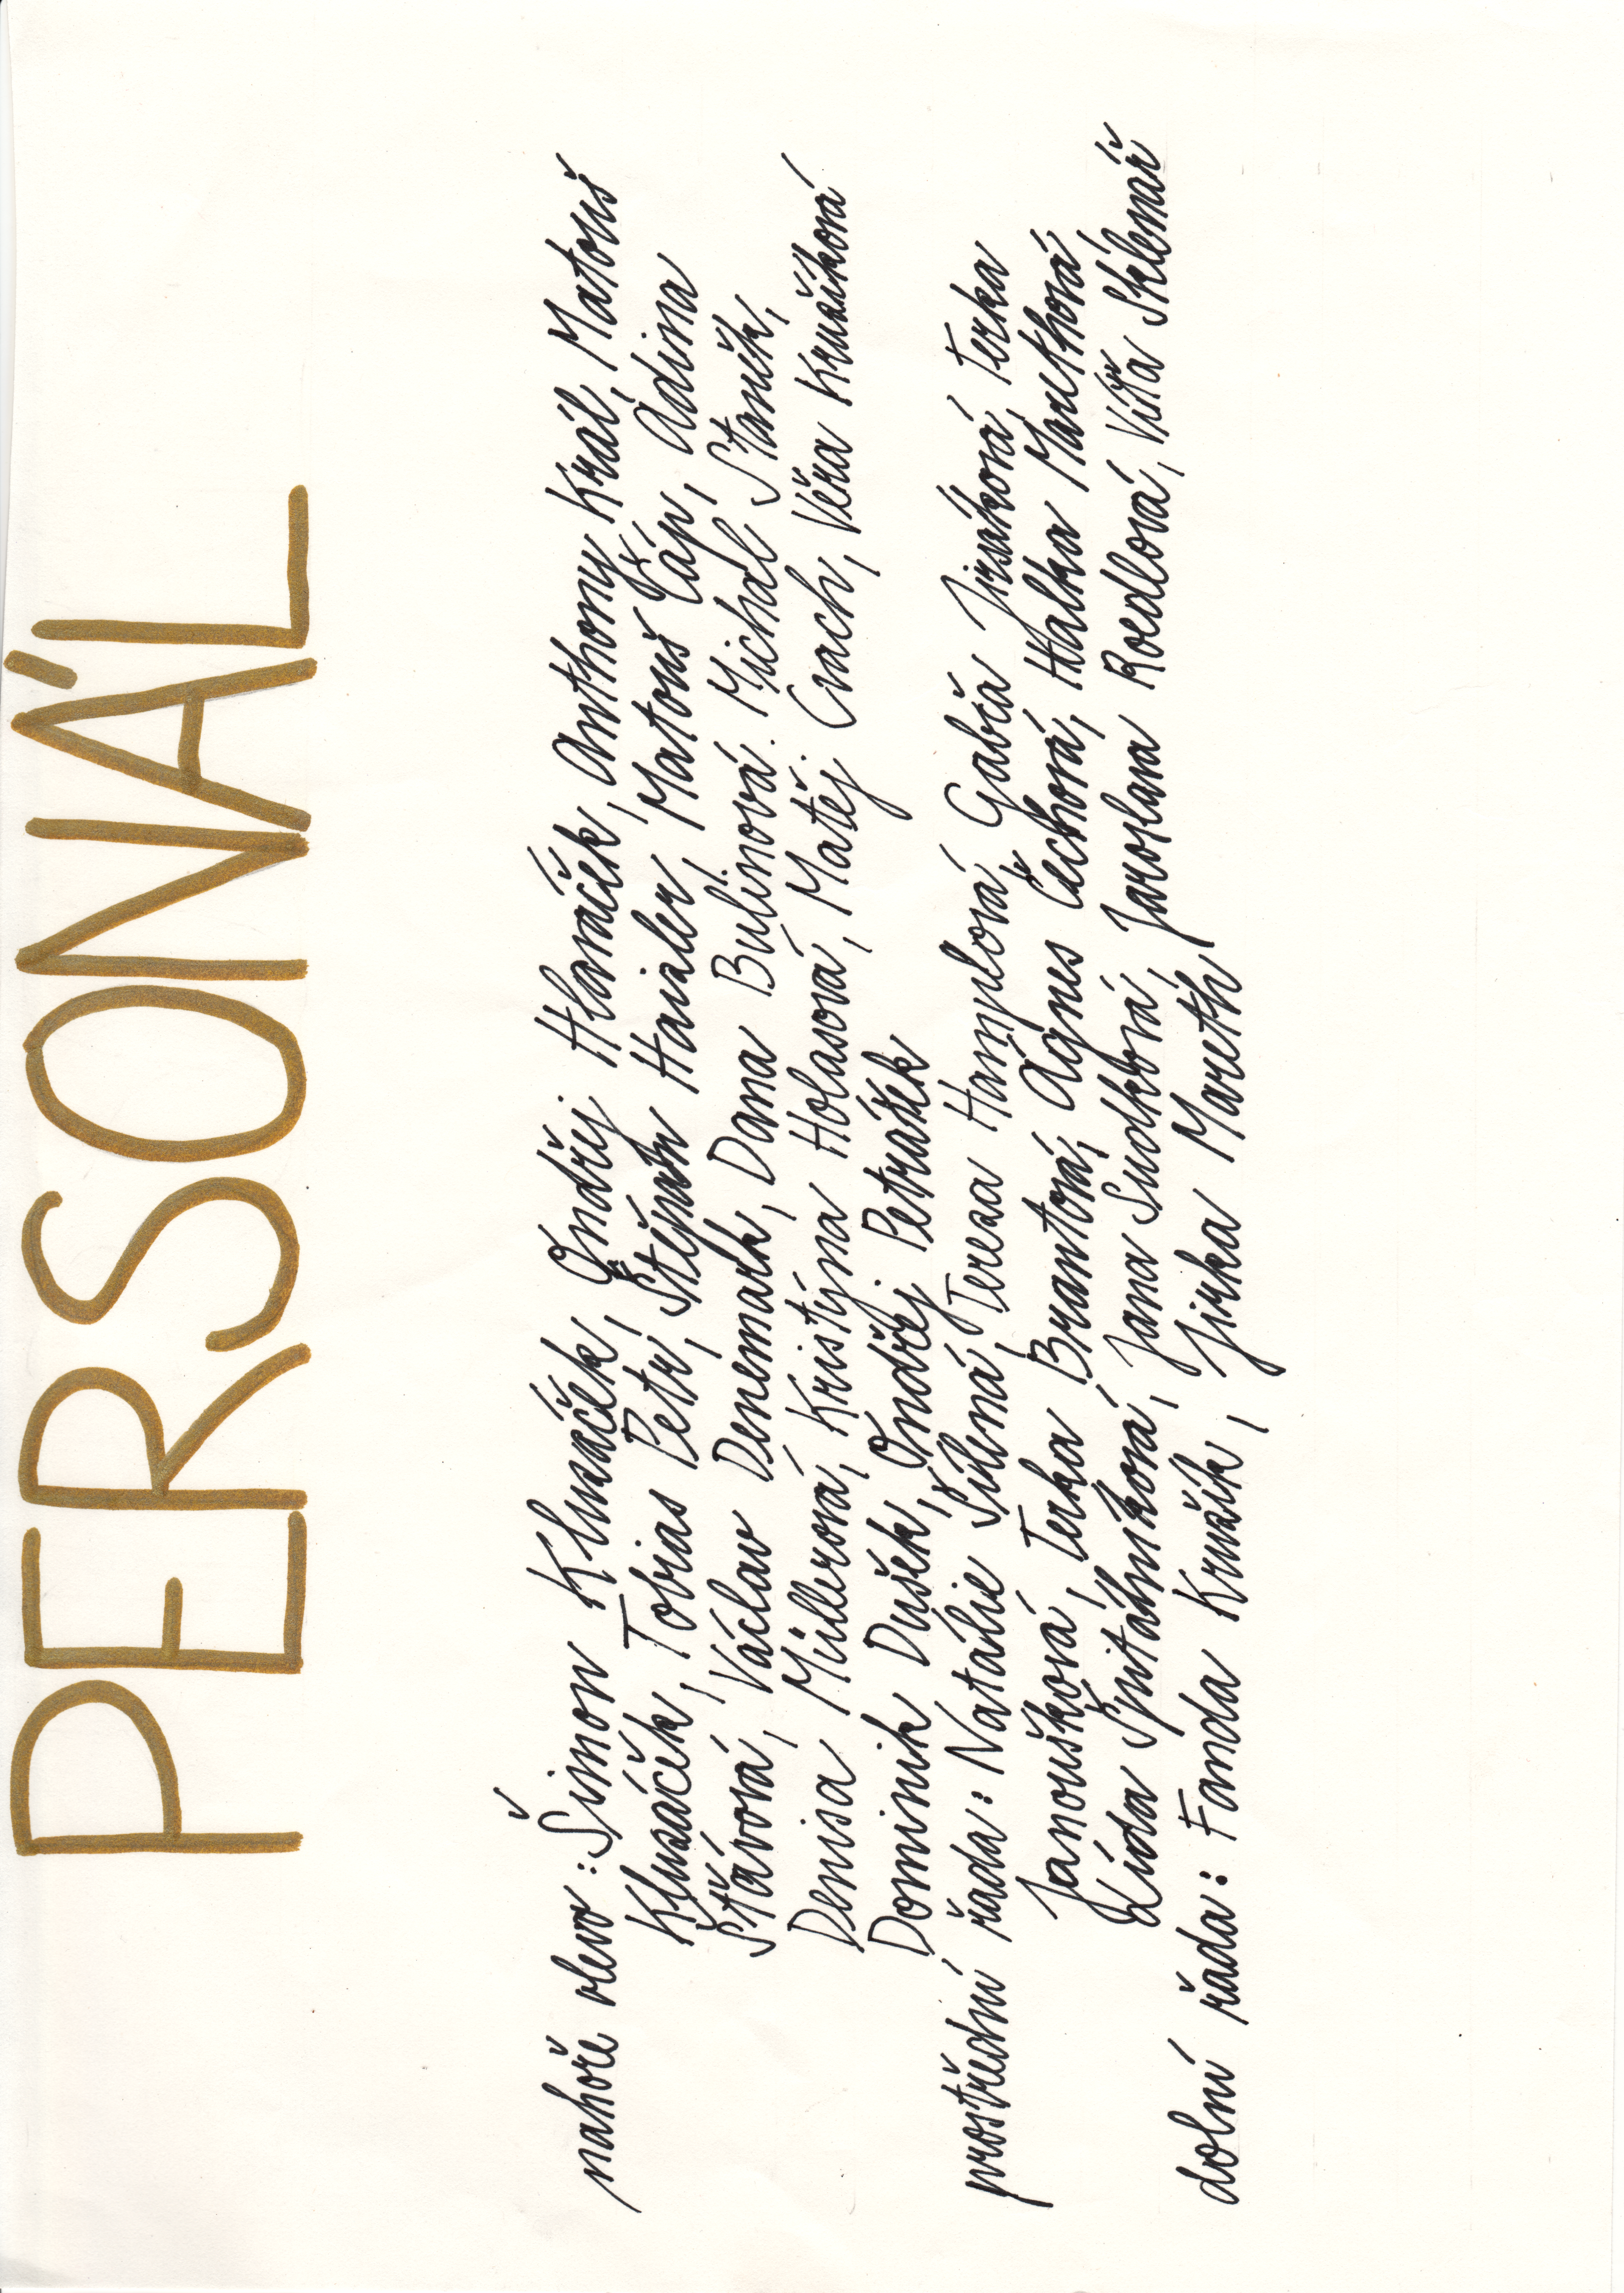 PERSONÁL
nahoře vlevo: Šimon Kluzáček, Ondřej Hlaváček, Anthony Král, Matouš
Kluzáček, Tobias Petr, Štěpán Haisler, Matouš Čáp, Adina
Šťávová, Václav Denemark, Dana Bulínová. Michal Staněk,
Denisa Müllerová, Kristýna Holasová, Matěj. Cvach, Věra Kružíková
Dominik Dušek, Ondřej Petráček
prostřední řada: Natálie Šílená, Tereza Hamplová, Gabča Jirsáková, Terka
Janoušková, Terka Brantová, Agnes Čechová, Halka Marethová,
Lída Špitálníková, Jana Sudková, Jaroslava Roedlová, Víťa Sklenář
dolní řada: Fanda Kružík, Jirka Mareth